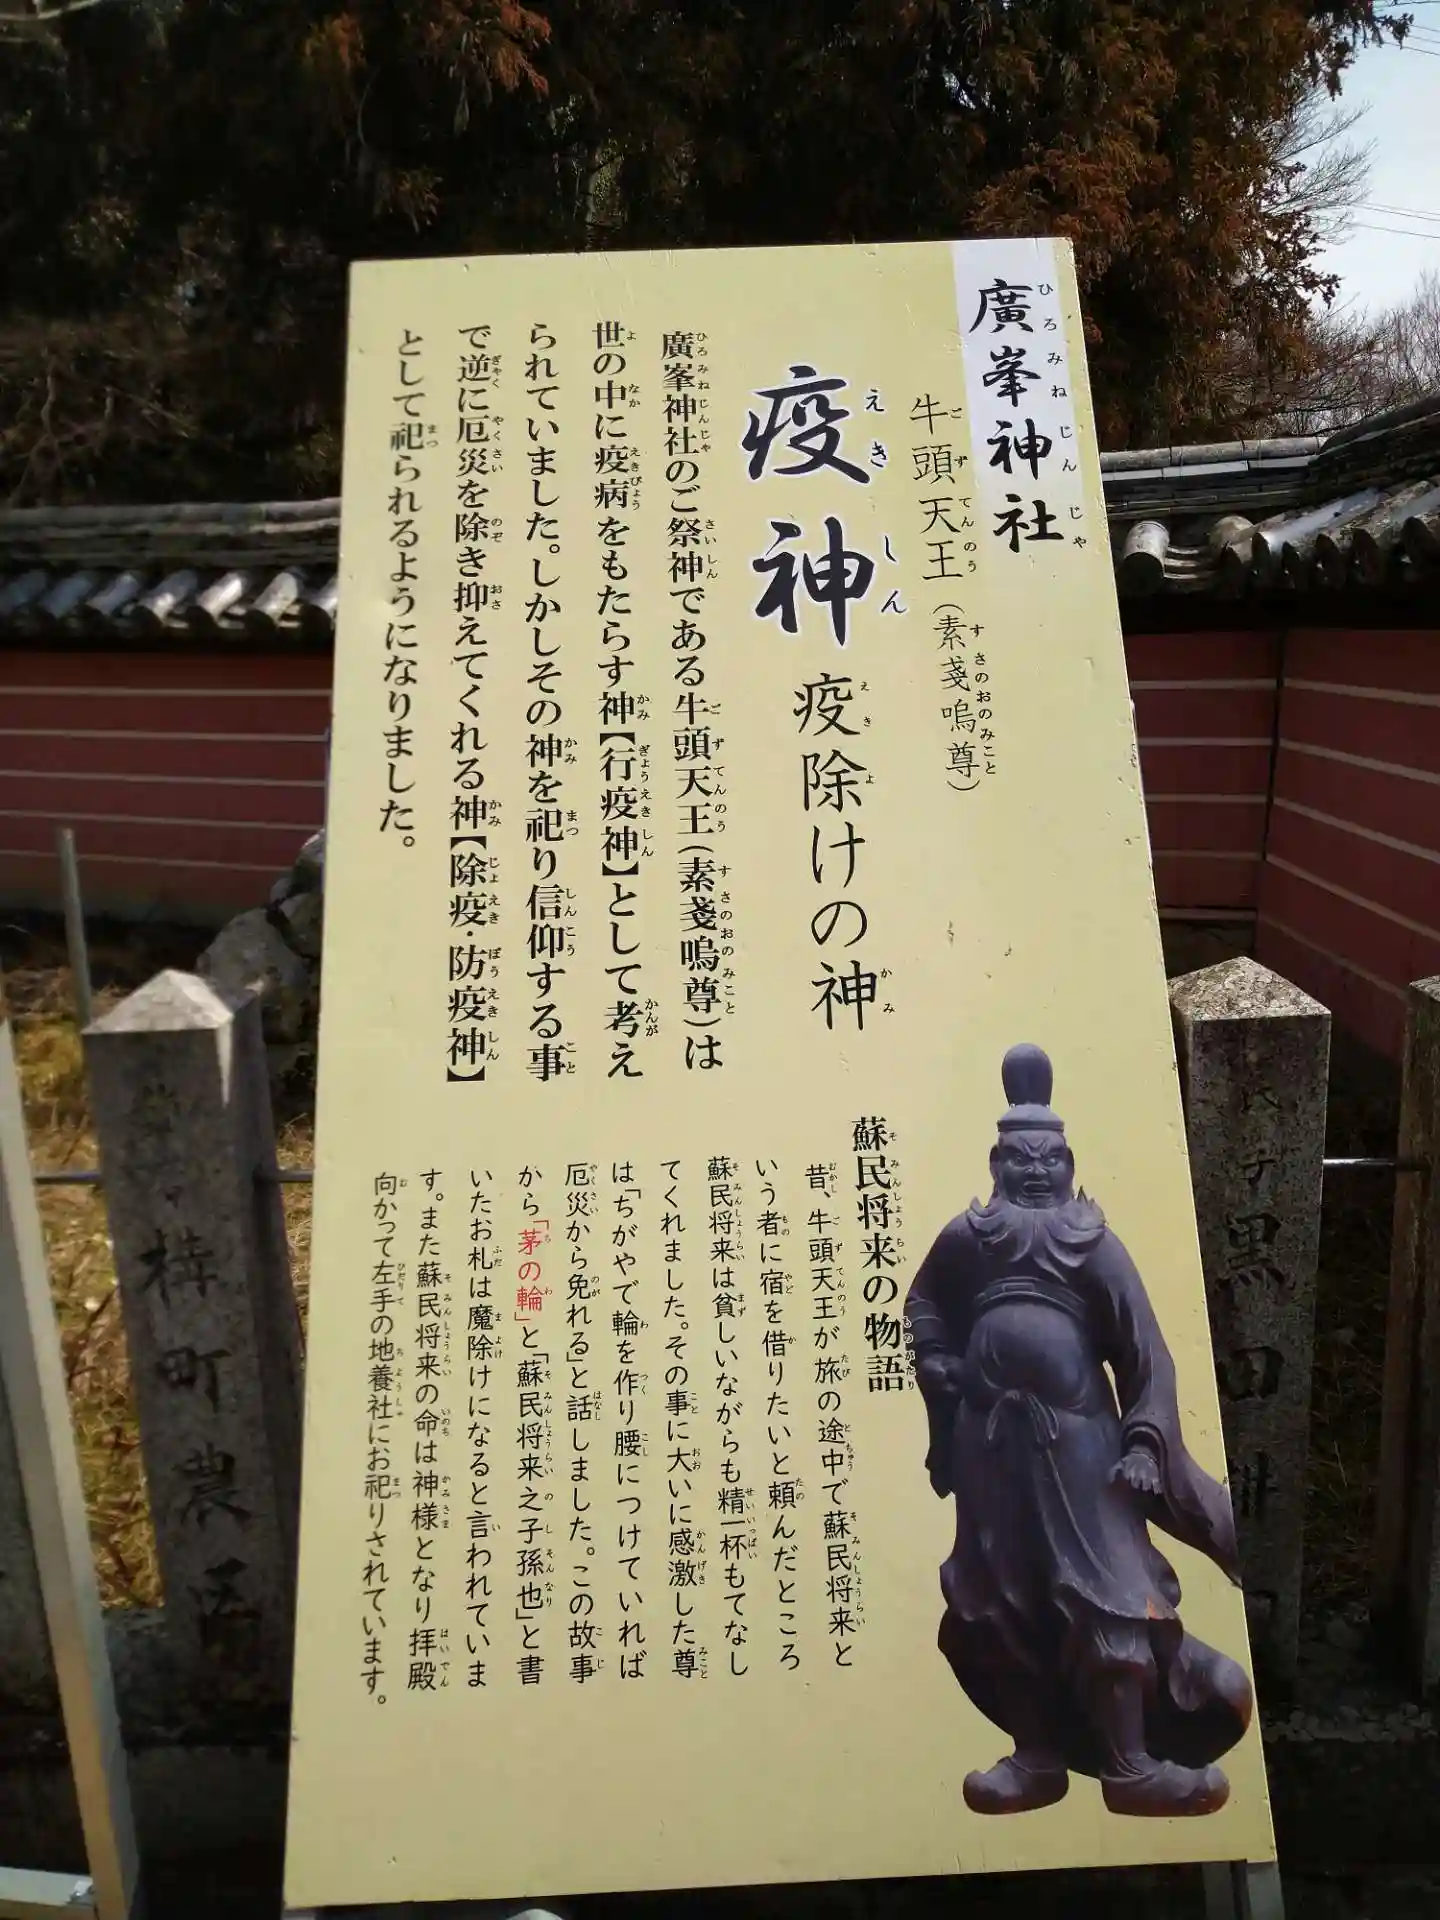 廣峯神社
ひろみねじんじゃ
牛頭天王（素戔嗚尊）
ごずてんのう すさのおのみこと
疫神 疫除けの神
えきしん えきよ かみ
廣峯神社のご祭神である牛頭天王（素戔嗚尊）は
世の中に疫病をもたらす神【行疫神】として考え
られていました。しかしその神を祀り信仰する事
で逆に厄災を除き抑えてくれる神【除疫・防疫神】
として祀られるようになりました。
蘇民将来の物語
そみんしょうらい ものがたり
昔、牛頭天王が旅の途中で蘇民将来と
いう者に宿を借りたいと頼んだところ
蘇民将来は貧しいながらも精一杯もてなし
てくれました。その事に大いに感激した尊
は「ちがやで輪を作り腰につけていれば
厄災から免れる」と話しました。この故事
から「茅の輪」と「蘇民将来之子孫也」と書
いたお札は魔除けになると言われていま
す。また蘇民将来の命は神様となり拝殿
向かって左手の地養社にお祀りされています。
構町農区
黒田